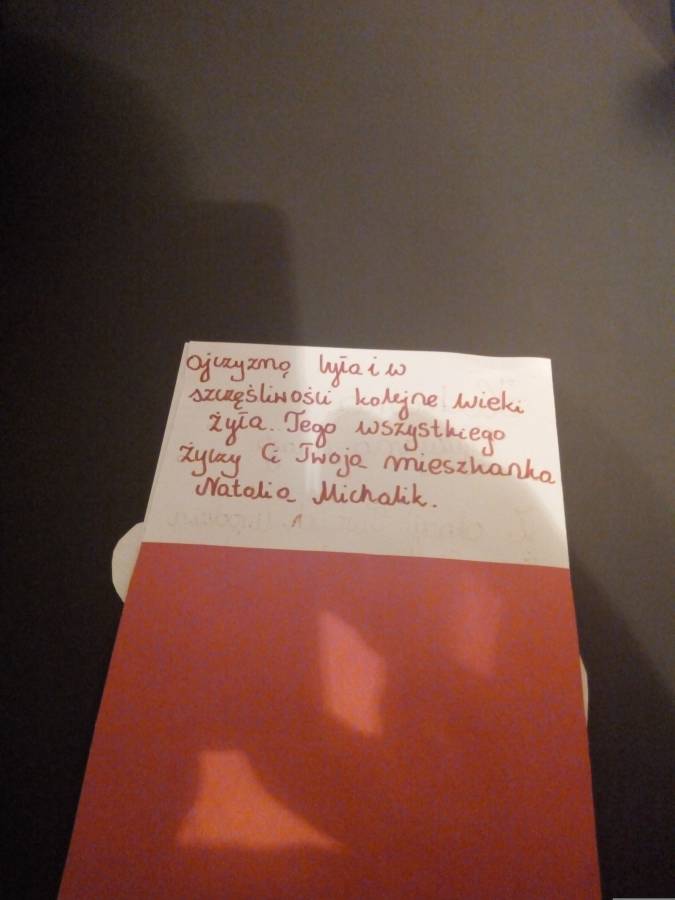 Ojczyzną była i w
szczęśliwości kolejne wieki
żyła. Tego wszystkiego
życzy Ci Twoja mieszkanka
Natalia Michalik.